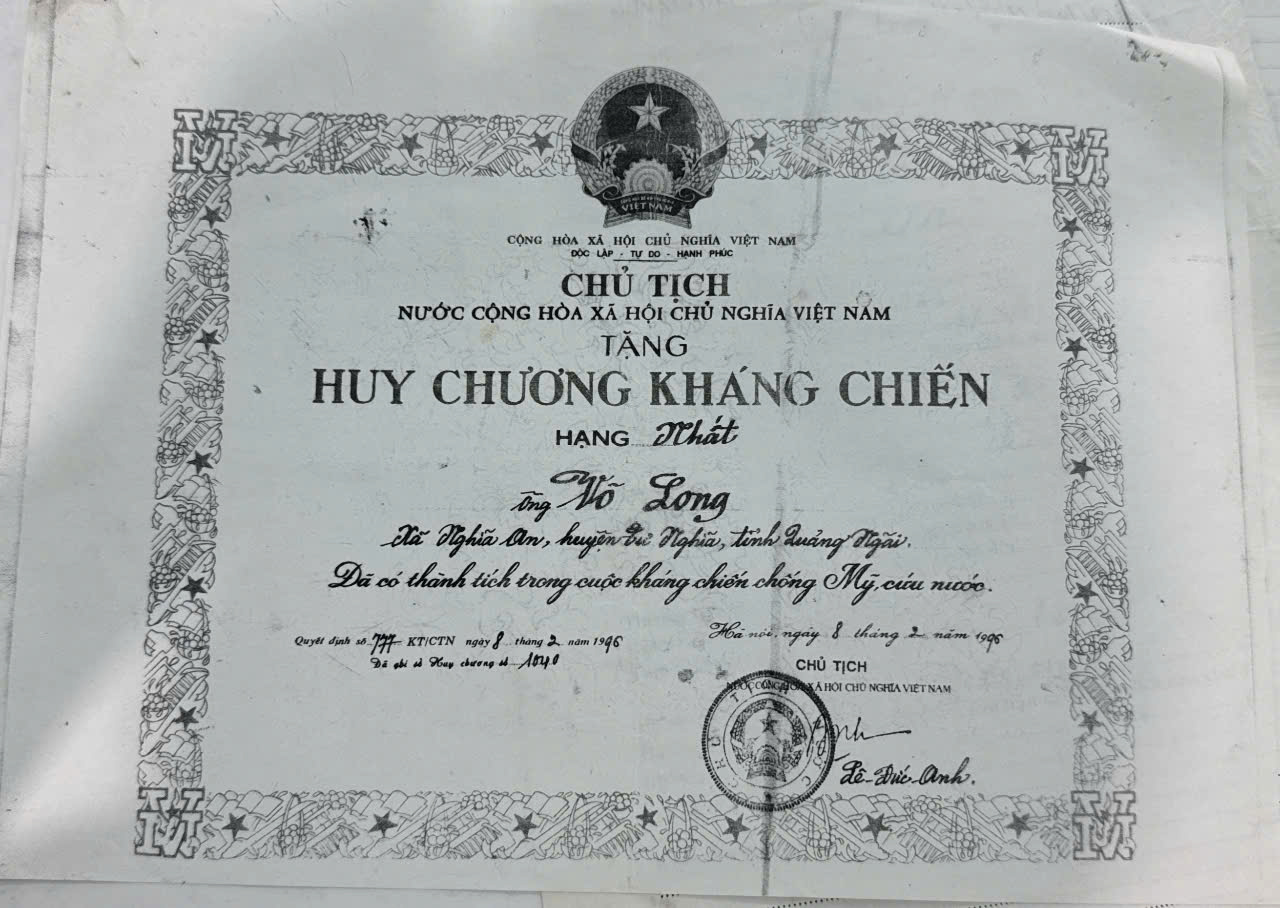 VIỆT NAM
CỘNG HÒA XÃ HỘI CHỦ NGHĨA VIỆT NAM
ĐỘC LẬP - TỰ DO - HẠNH PHÚC
CHỦ TỊCH
NƯỚC CỘNG HÒA XÃ HỘI CHỦ NGHĨA VIỆT NAM
TẶNG
HUY CHƯƠNG KHÁNG CHIẾN
HẠNG Nhất
Ông Võ Long
Xã Nghĩa An, huyện Tư Nghĩa, tỉnh Quảng Ngãi.
Đã có thành tích trong cuộc kháng chiến chống Mỹ, cứu nước.
Quyết định số 777 KT/CTN ngày 8 tháng 2 năm 1996
Đã ghi sổ Huy chương số 1040
Hà nội, ngày 8 tháng 2 năm 1996
CHỦ TỊCH
NƯỚC CỘNG HÒA XÃ HỘI CHỦ NGHĨA VIỆT NAM
Lê-Đức-Anh.